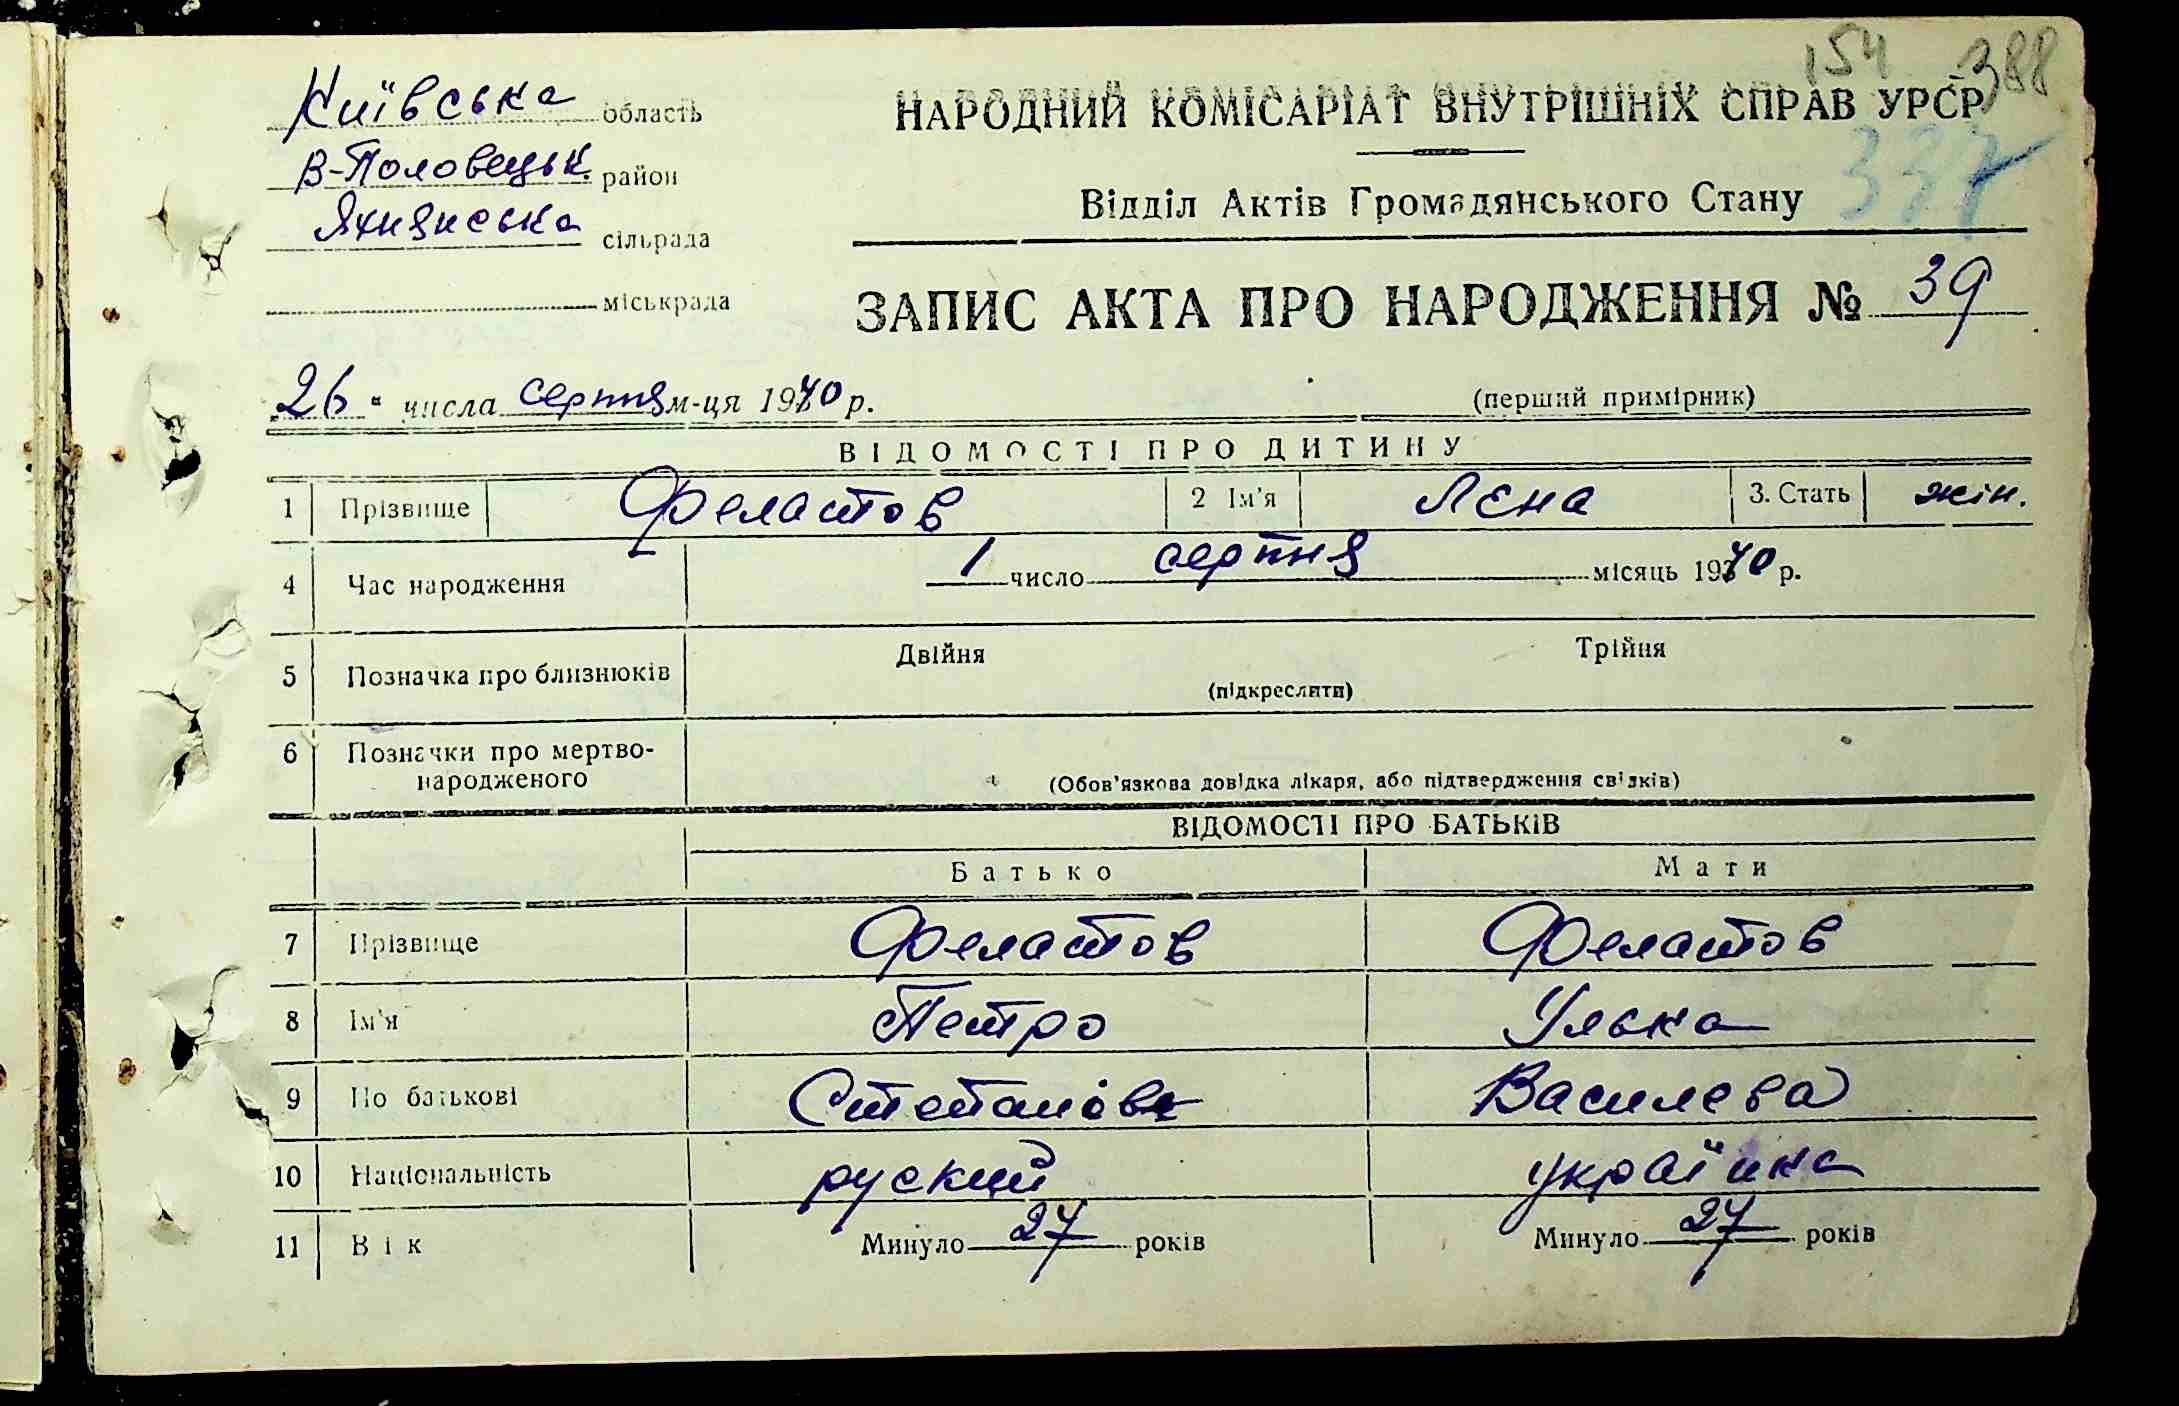 154 388
Київська область
НАРОДНИЙ КОМІСАРІАТ ВНУТРІШНІХ СПРАВ УРСР
337
В-Половецьк. район
Відділ Актів Громадянського Стану
Яхнянська сільрада
міськрада
ЗАПИС АКТА ПРО НАРОДЖЕННЯ № 39
26 " числа серпня м-ця 1940 р.
(перший примірник)
ВІДОМОСТІ ПРО ДИТИНУ
1 Прізвище Феластов 2 Ім'я Лєна 3. Стать жін.
4 Час народження 1 число серпня місяць 1940 р.
5 Позначка про близнюків Двійня Трійня
(підкреслити)
6 Позначки про мертво-
народженого
(Обов'язкова довідка лікаря, або підтвердження свідків)
ВІДОМОСТІ ПРО БАТЬКІВ
Батько Мати
7 Прізвище Феластов Феластов
8 Ім'я Петро Улька
9 По батькові Степанов Василева
10 Національність руский українка
11 Вік Минуло 27 років Минуло 27 років